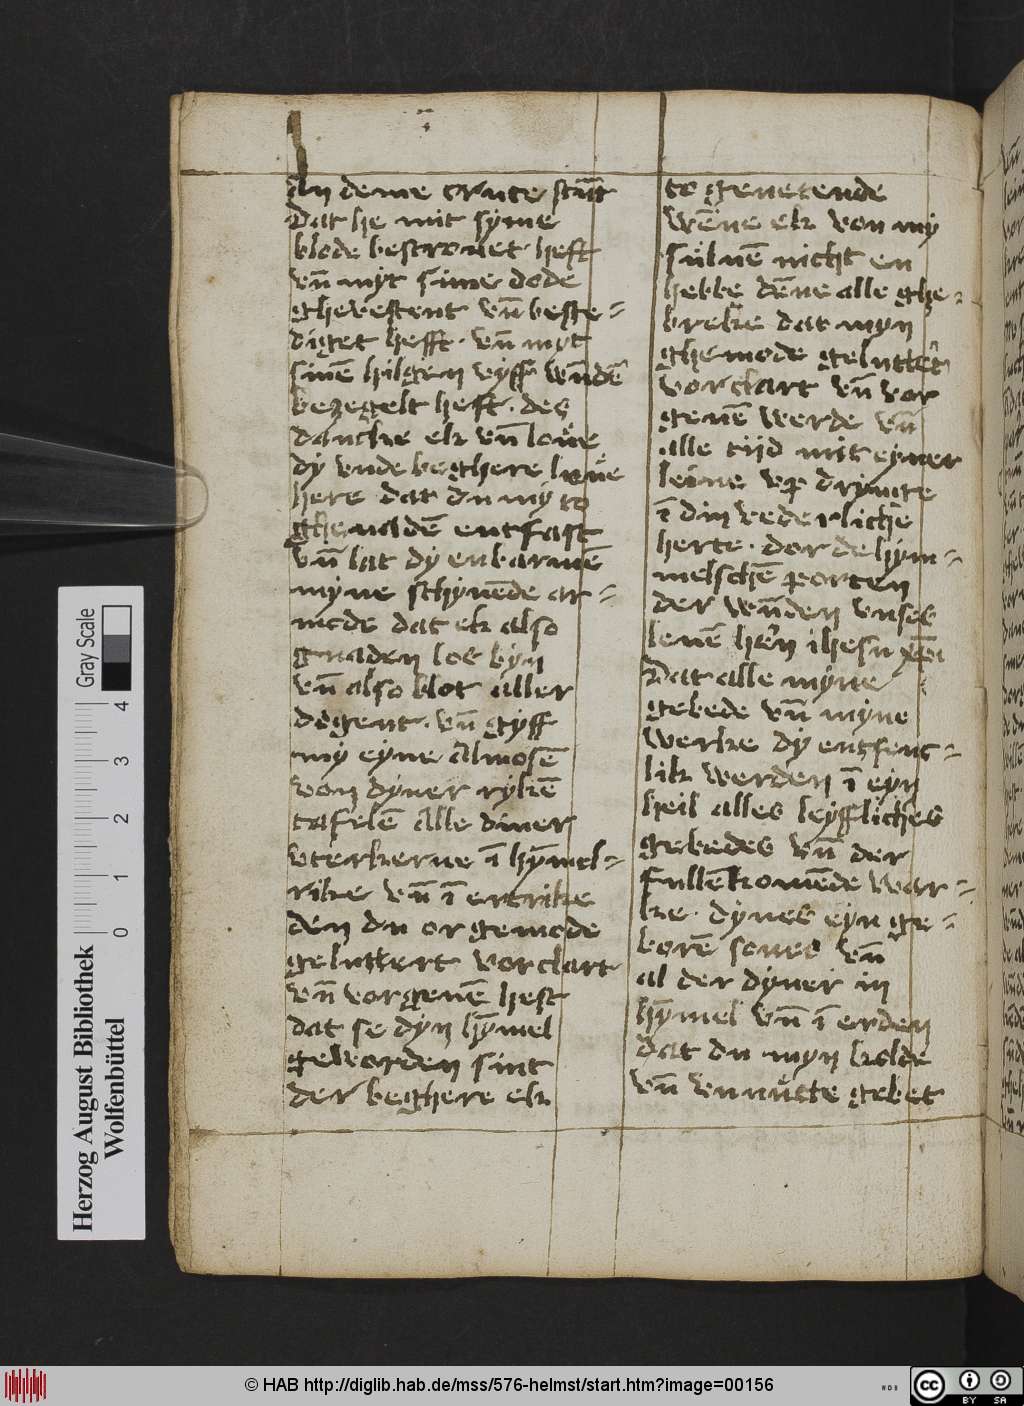 An deme cruce stūt
Dat he mit syme
blode bestrouet heft
vn̄ myt sime dode
ghevestent vn̄ beste=
diget hefft · vn̄ myt
sinē hilgen vyff wūdē
bezegelt heft · des
dancke ek vn̄ loue
dy vnde beghere leue
here dat du my to
ghenadē entfast
vn̄ lat dy enbarmē
myne schynēde ar=
mode dat ek also
gnaden los byn
vn̄ also blot aller
dogent · vn̄ gyff
my eyne Almosē
von dyner rykē
tafelē Alle diner
vterkerne ī hȳmel=
rike vn̄ ī ertrike
den du or gemode
geluttert vorclart
vn̄ vorgeuē hest
dat se dyn hȳmel
geworden sint
der beghere ek
to genetende
Wēne ek von my
suluē nicht en
hebbe dēne alle ghe=
breke dat myn
ghemode geluttert
vorclart vn̄ vor
geuē werde vn̄
alle tijd mit eyner
leime vp drynte
ī din vederlichē
herte · dor de hym=
melschē porten
der wūden vnses
leuē hern ihesu xp̄i
Dat alle myne
gebede vn̄ myne
werke dy entfenc=
lik werden ī eyn
heil alles leyffliches
gebedes vn̄ der
fullēkomēde war=
ke · dynes eyn ge=
borē sones vn̄
al der dyner in
hȳmel vn̄ ī erden
Dat du myn kolde
vn̄ vnnutte gebet
Gray Scale
0 1 2 3 4
Herzog August Bibliothek
Wolfenbüttel
© HAB http://diglib.hab.de/mss/576-helmst/start.htm?image=00156
WDB
CC BY SA